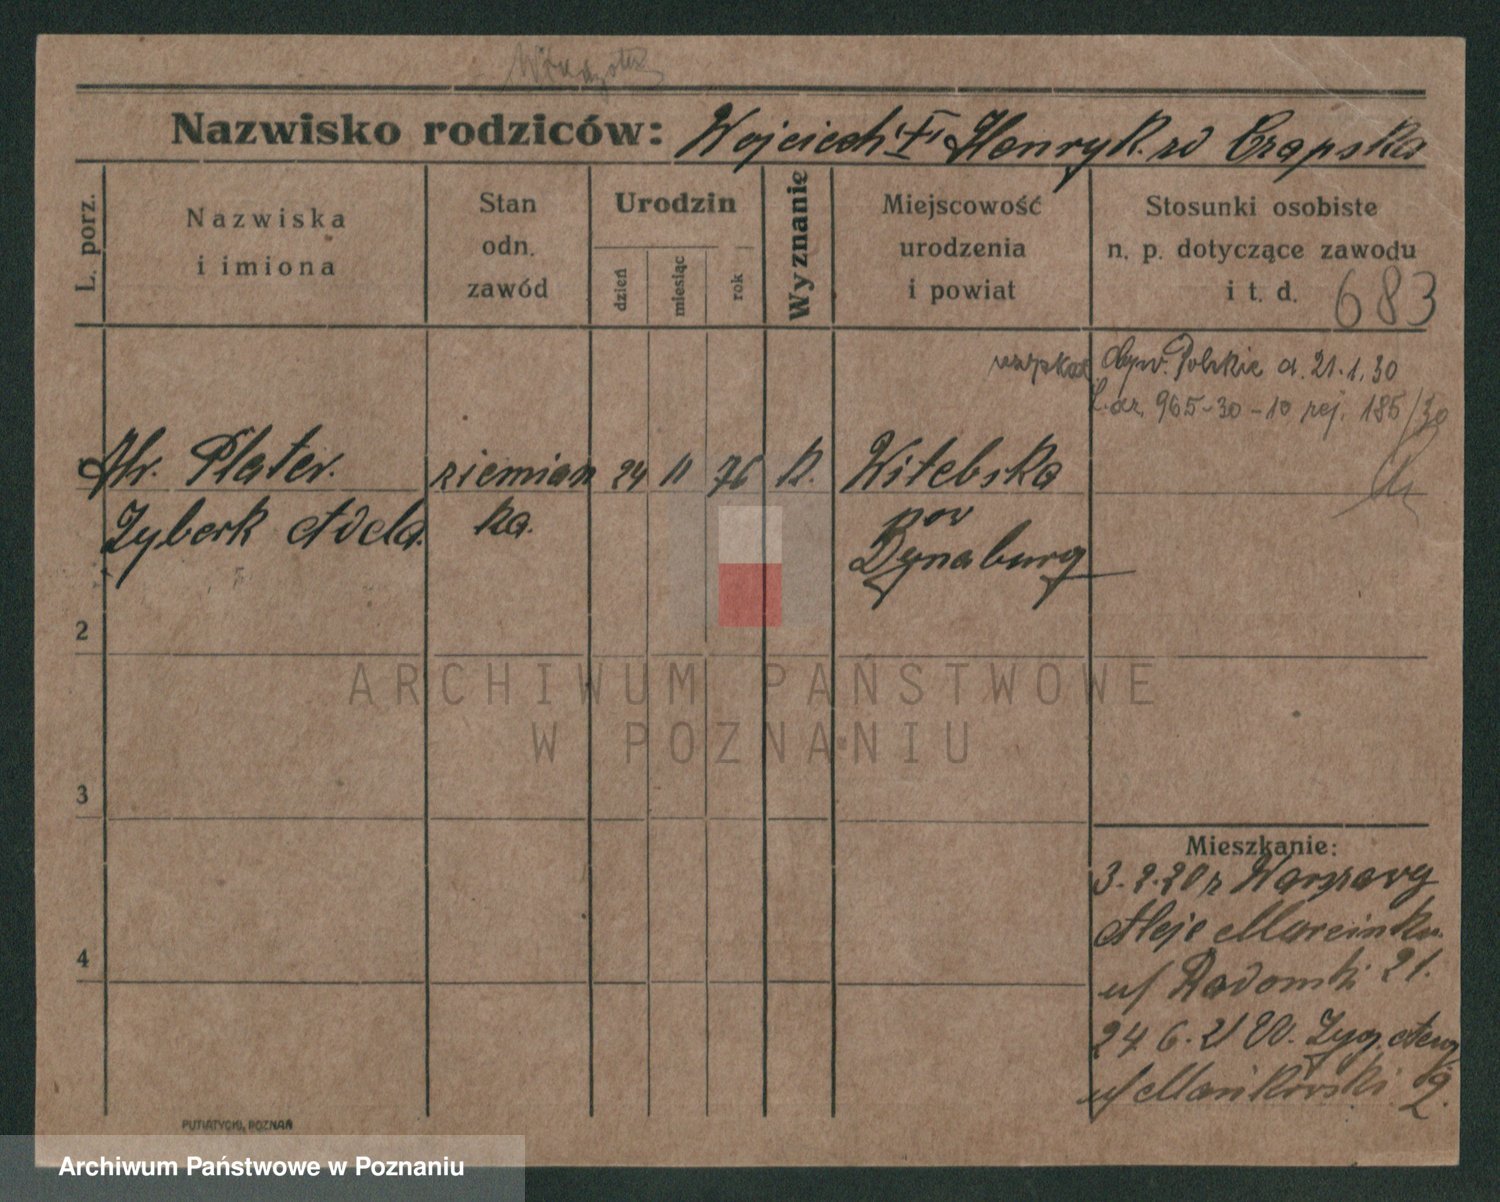 Nazwisko rodziców: Wojciech Henryk. zd Czapska
L. porz.
Nazwiska
i imiona
Stan
odn.
zawód
Urodzin
dzień
miesiąc
rok
Wyznanie
Miejscowość
urodzenia
i powiat
Stosunki osobiste
n. p. dotyczące zawodu
i t. d. 683
uzyskał obyw. Polskie d. 21.1.30
L. dz. 965-30-10 rej. 185/30
Hr. Plater. ziemian 24 11 76 K. Witebska
Zyberk Adela. ka. pow
Dynaburg
2
3
4
Mieszkanie:
3.2.20 z Warszawy
Aleje Marcink.
u/ Radomski 21.
24.6.21 W. Zyg. Aug
u/ Mańkowski 2.
PUTIATYCKI, POZNAŃ
ARCHIWUM PAŃSTWOWE
W POZNANIU
Archiwum Państwowe w Poznaniu